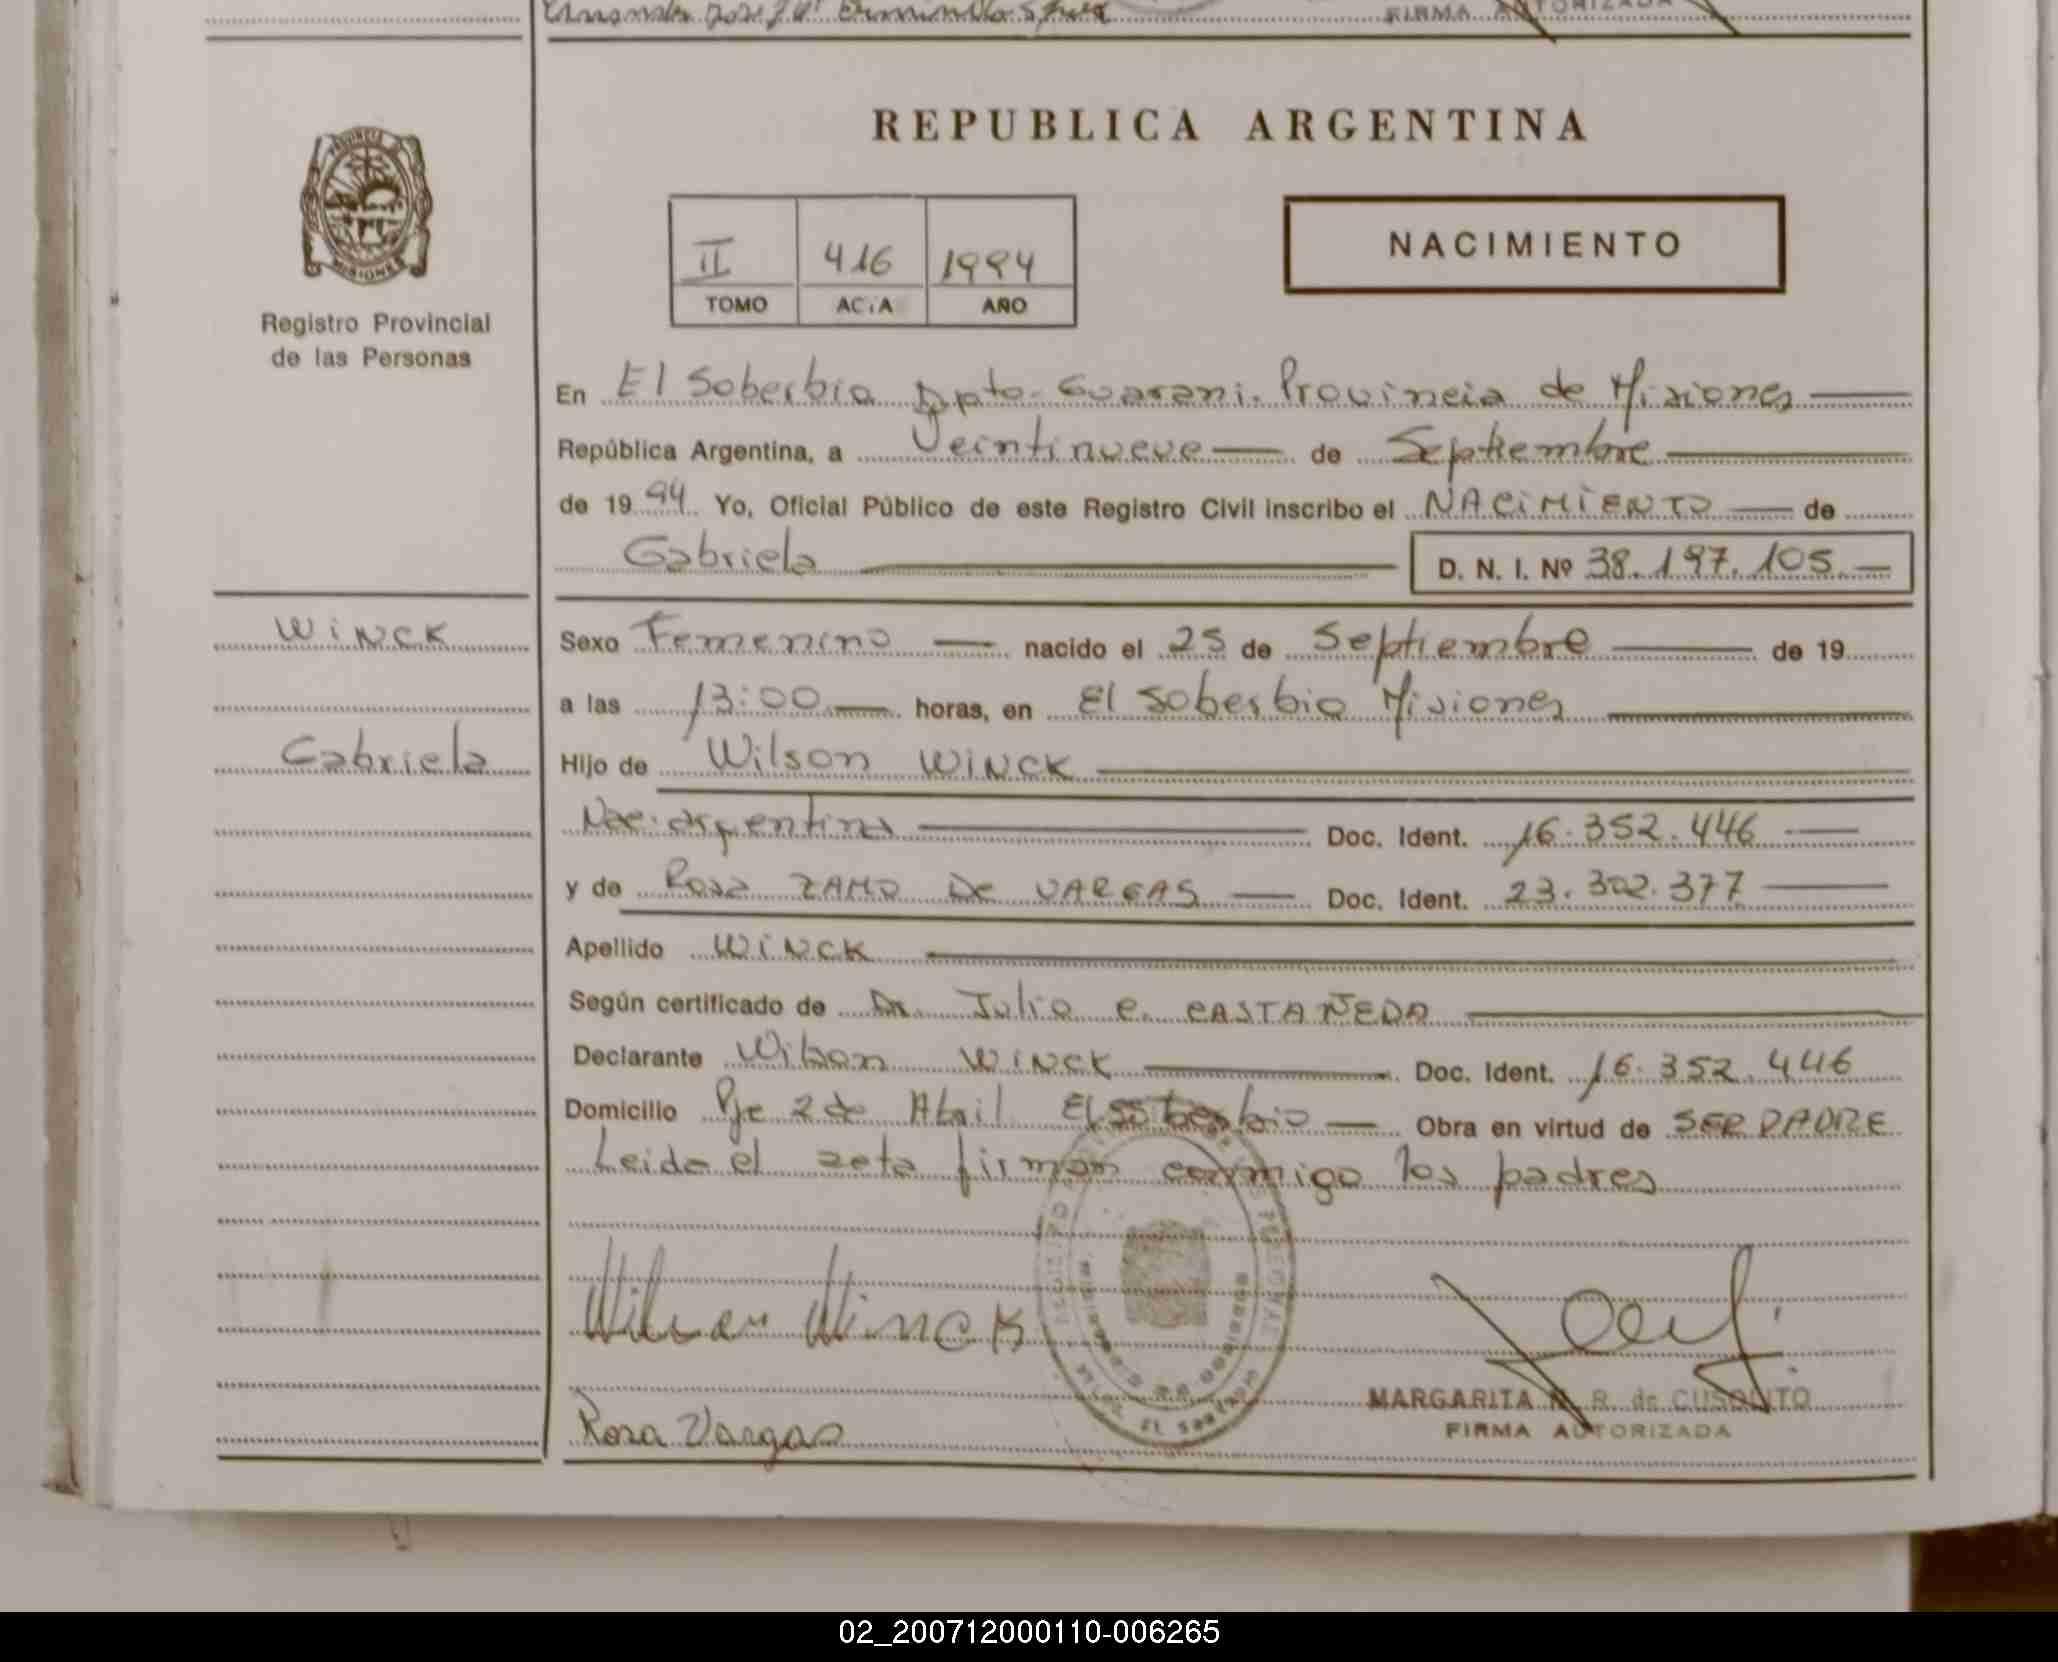 FIRMA AUTORIZADA
REPUBLICA ARGENTINA
PROVINCIA
MISIONES
Registro Provincial
de las Personas
II 416 1994
TOMO ACTA AÑO
NACIMIENTO
En El Soberbio Dpto. Guarani. Provincia de Misiones
República Argentina, a Veintinueve de Septiembre
de 1994 Yo, Oficial Público de este Registro Civil inscribo el NACIMIENTO de
Gabriela D. N. I. Nº 38.197.105.
WINCK
Gabriela
Sexo Femenino nacido el 25 de Septiembre de 19
a las 13:00 horas, en El Soberbio Misiones
Hijo de Wilson WINCK
Nac. argentina Doc. Ident. 16.352.446
y de Rosa ZAMO De VARGAS Doc. Ident. 23.302.377
Apellido WINCK
Según certificado de Dr. Julio C. CASTAÑEDA
Declarante Wilson WINCK Doc. Ident. 16.352.446
Domicilio Pje 2 de Abril El Soberbio Obra en virtud de SER PADRE
Leida el acta firman conmigo los padres
Wilson Winck
Rosa Vargas
MARGARITA R. de
FIRMA AUTORIZADA
02_200712000110-006265